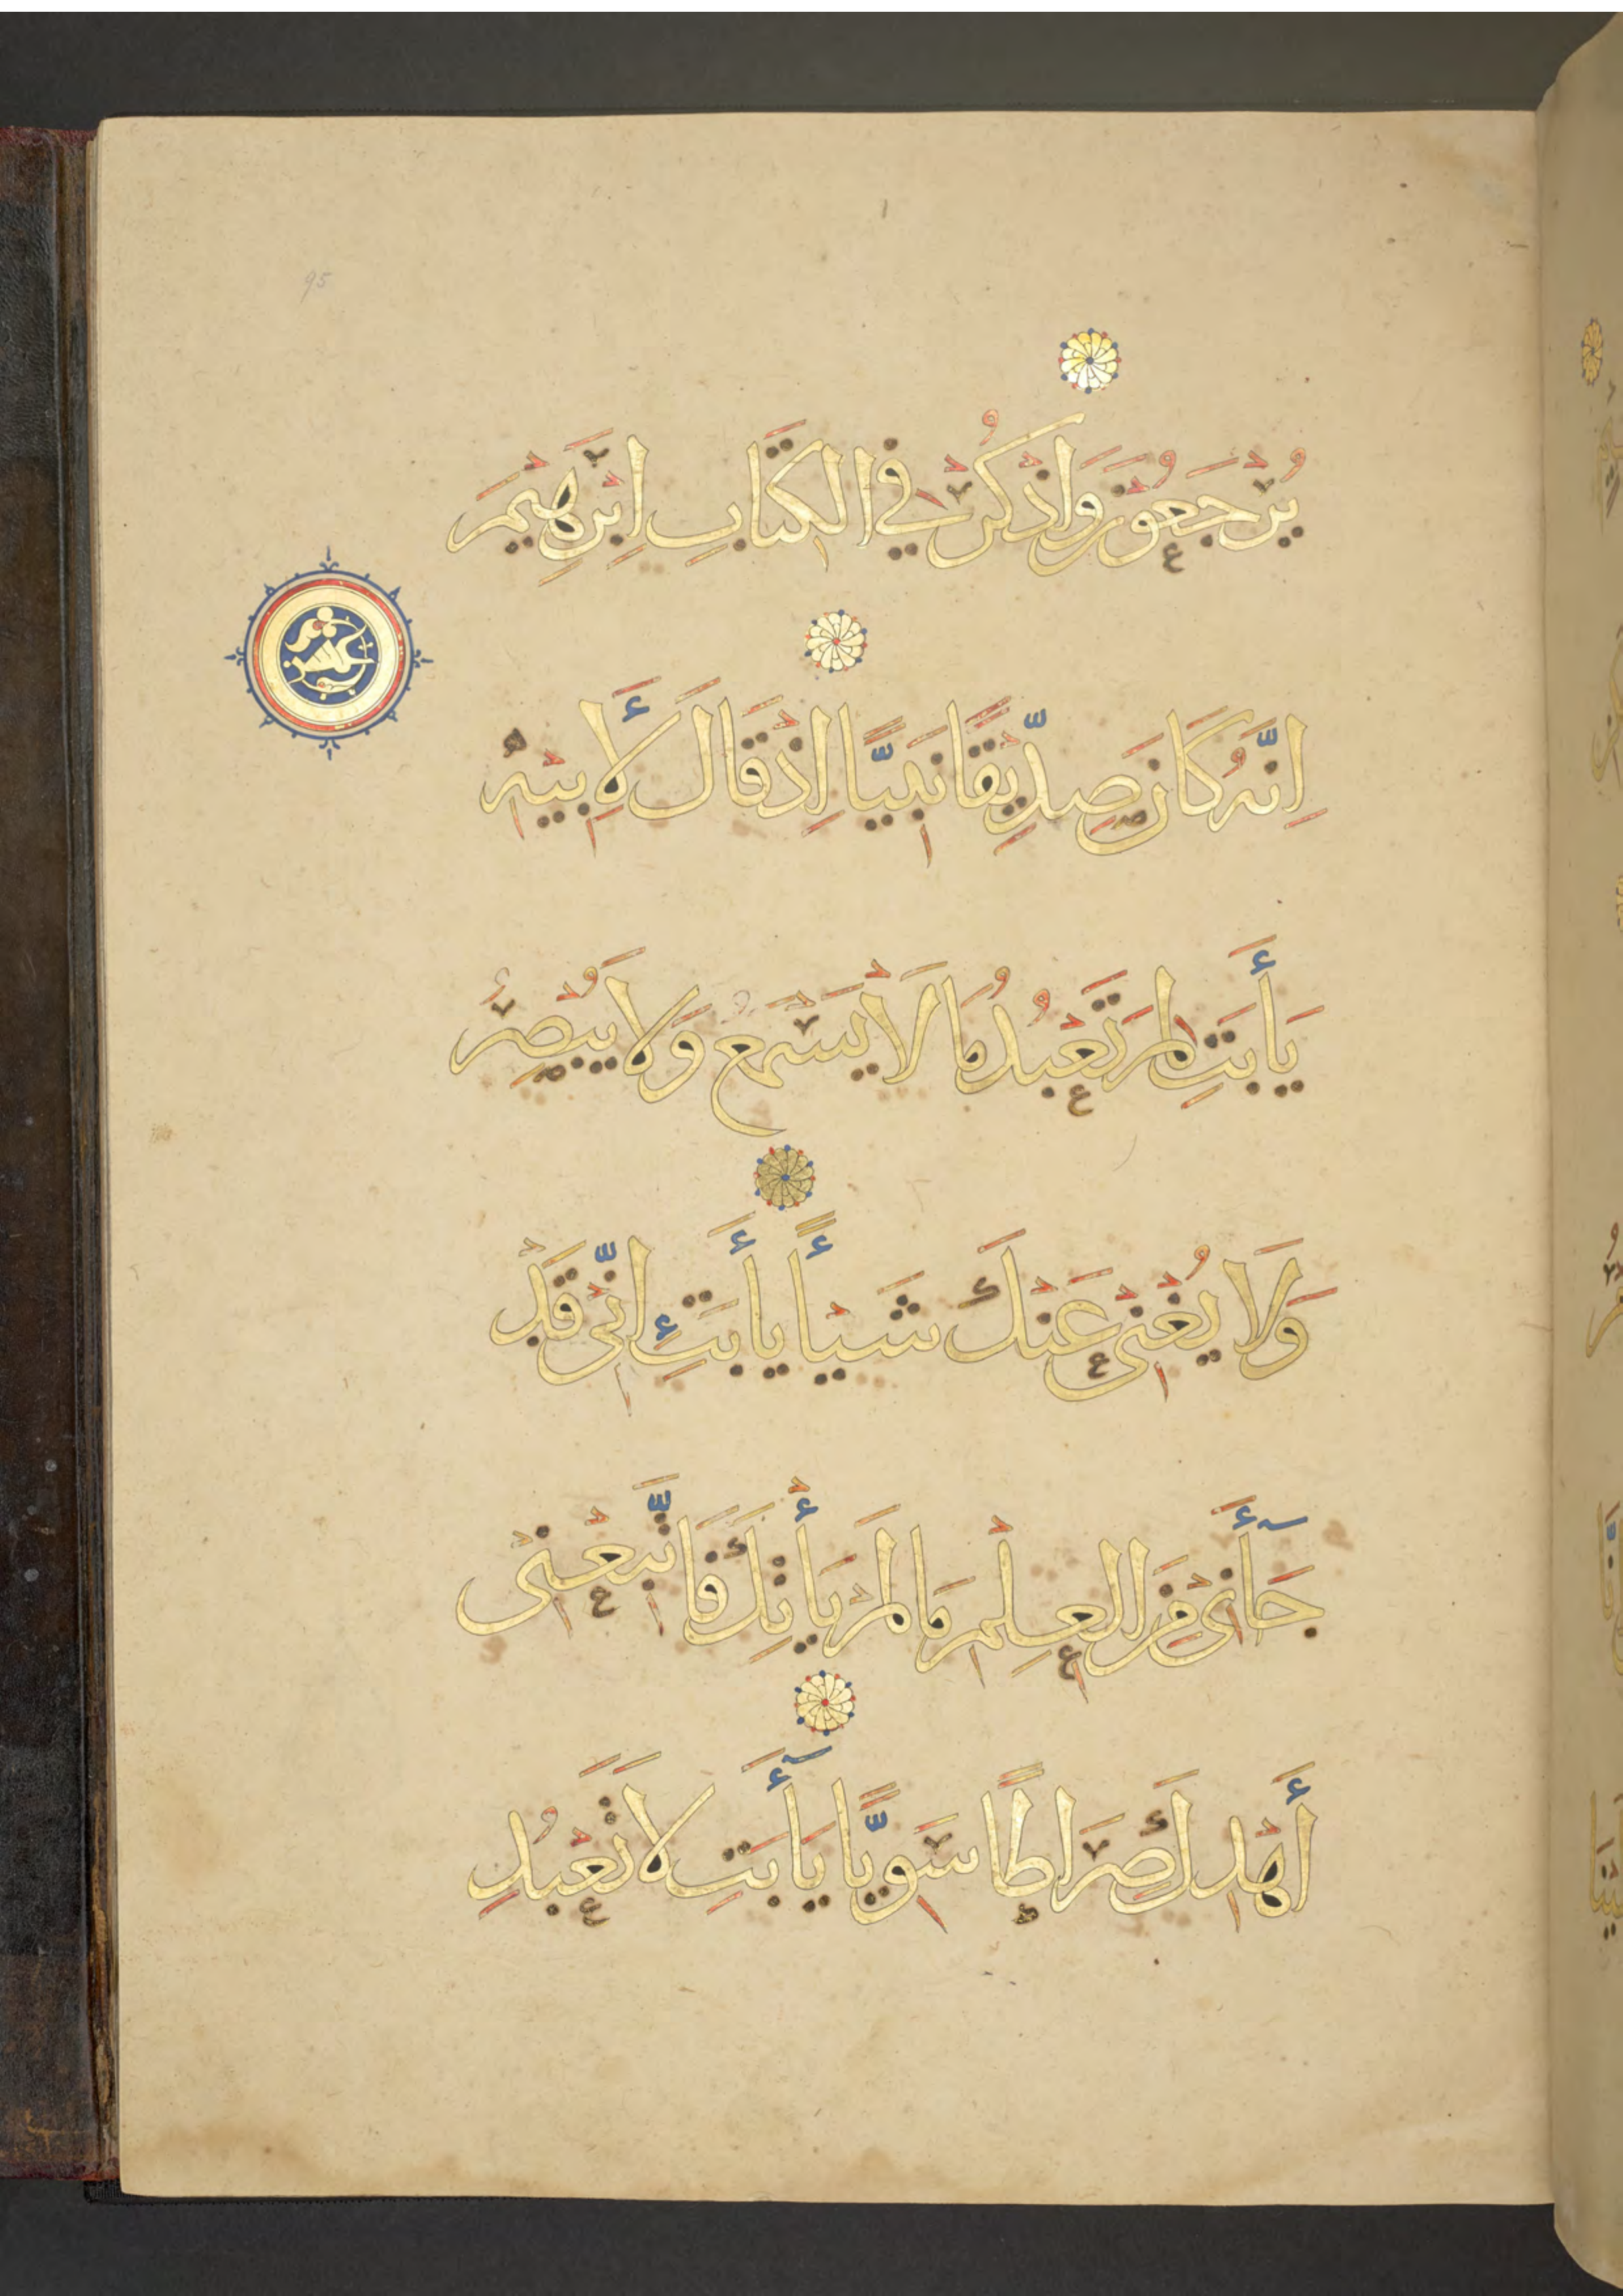 95
يُرْجَعُونَ وَاذْكُرْ فِي الْكِتَابِ اِبْرٰهِيْمَ
عشر
اِنَّهُ كَانَ صِدِّيْقًا نَبِيًّا اِذْ قَالَ لِأَبِيْهِ
يَا أَبَتِ لِمَ تَعْبُدُ مَا لَا يَسْمَعُ وَلَا يُبْصِرُ
وَلَا يُغْنِيْ عَنْكَ شَيْأً يَا أَبَتِ اِنِّيْ قَدْ
جَآأَنِيْ مِنَ الْعِلْمِ مَا لَمْ يَأْتِكَ فَاتَّبِعْنِيْ
أَهْدِكَ صِرَاطًا سَوِيًّا يَا أَبَتِ لَا تَعْبُدِ